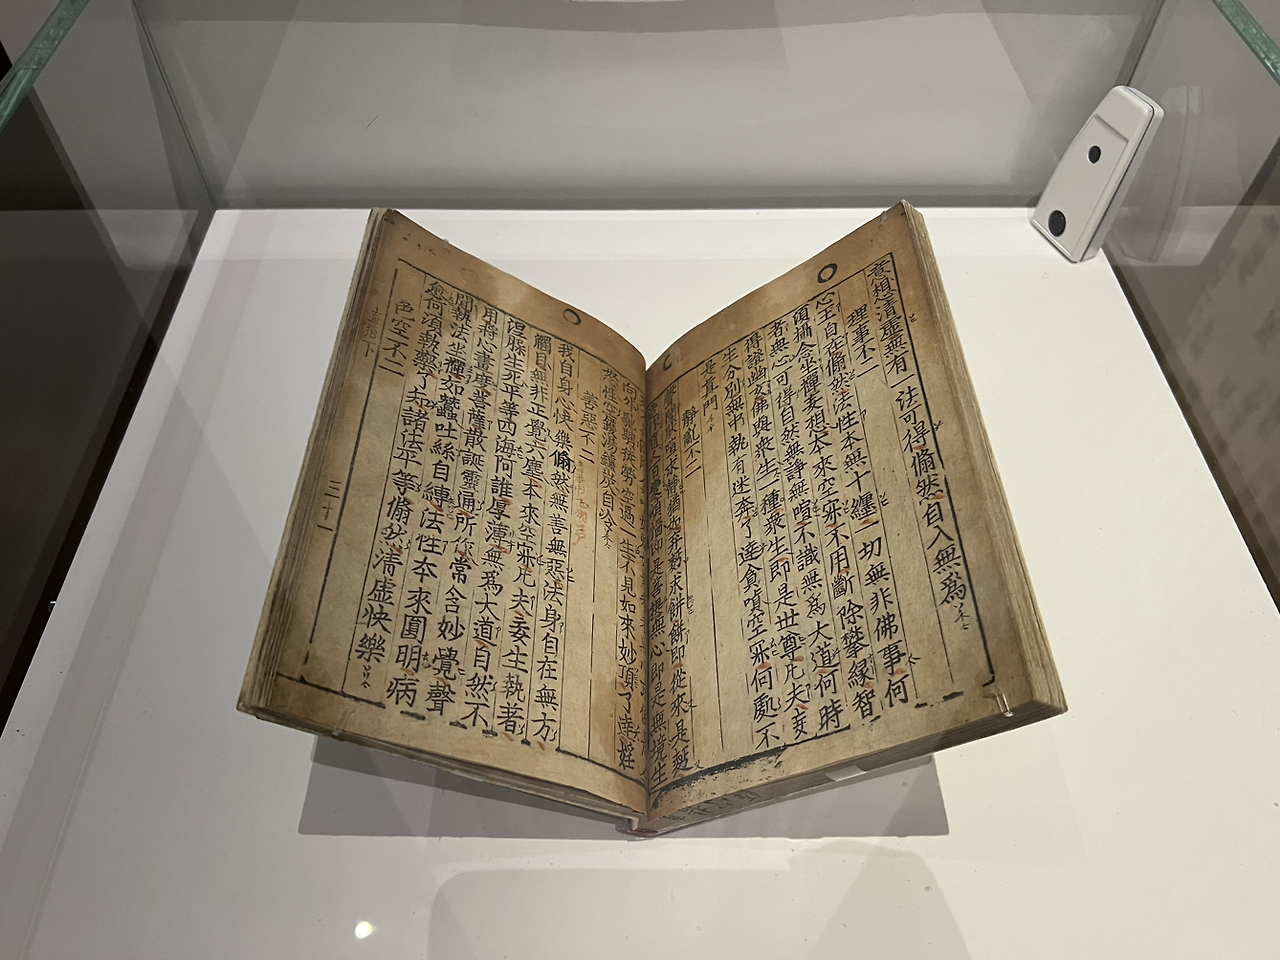 意想清虛無有一法可得翛然自入無爲
理事不二
心王自在翛然法性本無十纏一切無非佛事何
須攝念坐禪妄想本來空寂不用斷除攀緣智
者無心可得自然無諍無喧不識無爲大道何時
得證幽玄佛與衆生一種衆生即是世尊凡夫妄
生分別無中執有迷奔了達貪嗔空寂何處不
是眞門
靜亂不二
喧求靜猶如弃麪求餠餠即從來是麪
即是菩提無心即是無境生
勞空過一生不見如來妙頂了達婬
慾性空鑊湯爐炭自冷
善惡不二
我自身心快樂翛然無善無惡法身自在無方
觸目無非正覺六塵本來空寂凡夫妄生執著
涅槃生死平等四海阿誰厚薄無爲大道自然不
用將心畫度菩薩散誕靈通所作常含妙覺聲
聞執法坐禪如蠶吐絲自縛法性本來圓明病
愈何須執藥了知諸法平等翛然清虛快樂
色空不二
下 三十一